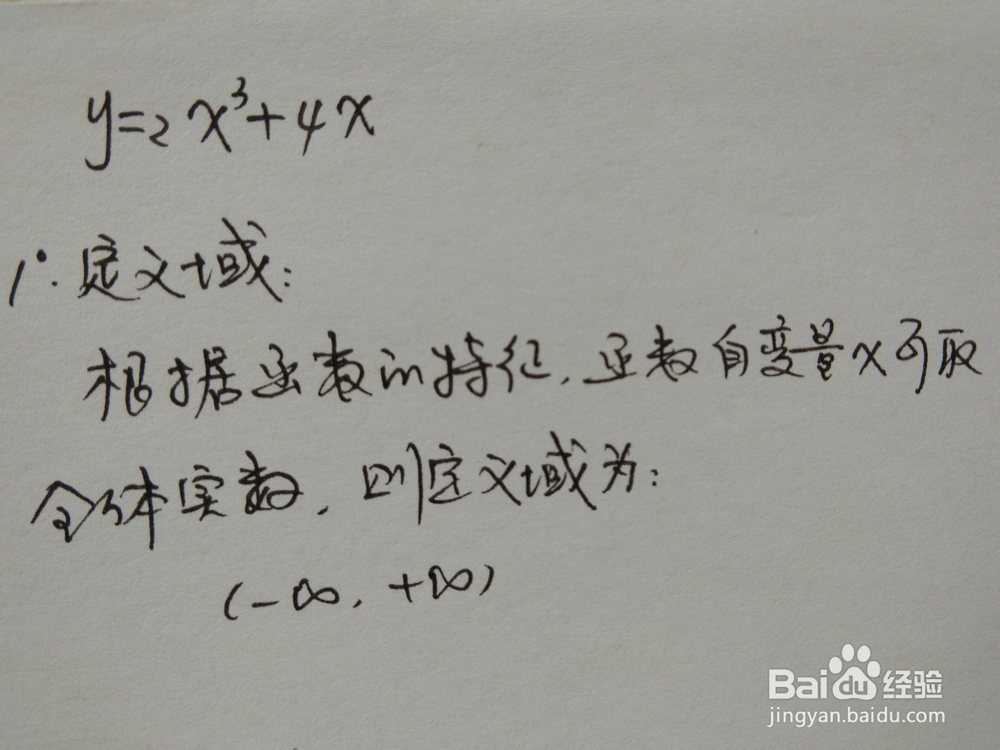 y=2x³+4x
1°.定义域:
根据函数的特征,函数自变量x可取
全体实数,则定义域为:
(-∞,+∞)
Baidu经验
jingyan.baidu.com